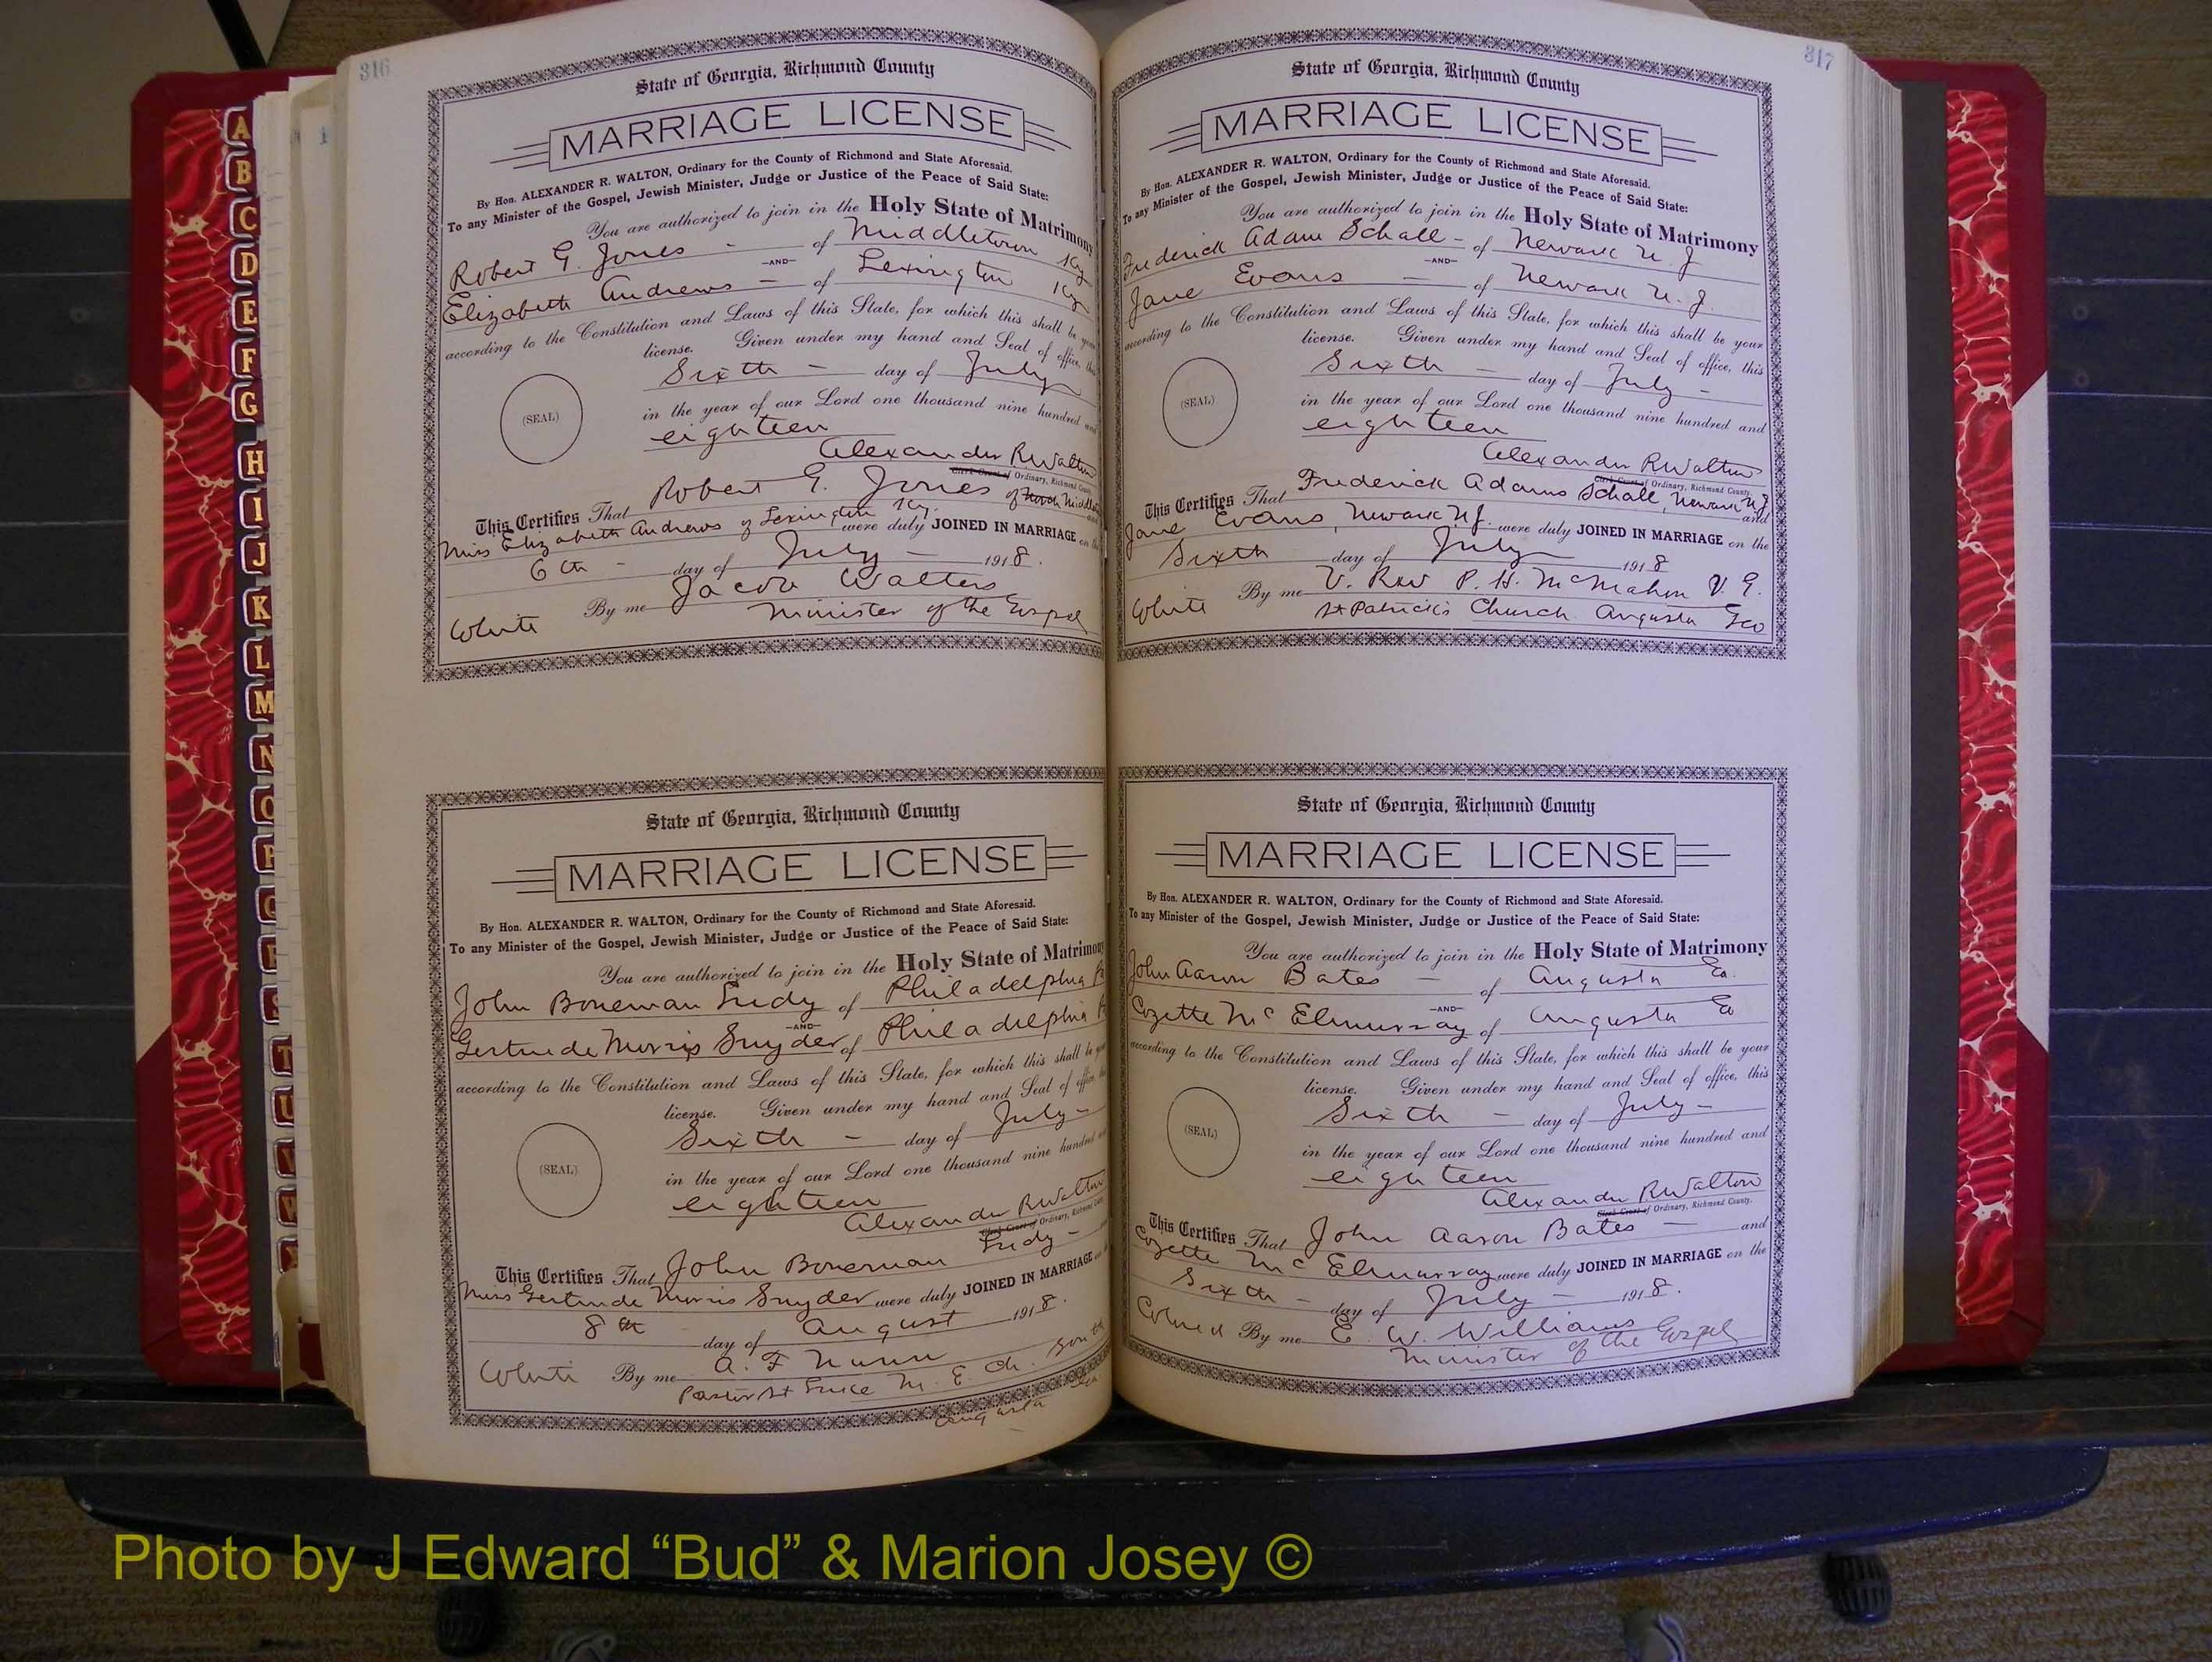 316
State of Georgia, Richmond County
MARRIAGE LICENSE
By Hon. ALEXANDER R. WALTON, Ordinary for the County of Richmond and State Aforesaid.
To any Minister of the Gospel, Jewish Minister, Judge or Justice of the Peace of Said State:
You are authorized to join in the Holy State of Matrimony
Robert G. Jones - of Middletown Ky
—AND—
Elizabeth Andrews - of Lexington Ky
according to the Constitution and Laws of this State, for which this shall be your
license. Given under my hand and Seal of office, this
Sixth - day of July
(SEAL)
in the year of our Lord one thousand nine hundred and
eighteen
Alexander R Walton
Clerk Court of Ordinary, Richmond County
This Certifies That Robert G. Jones of North Middle
Miss Elizabeth Andrews of Lexington Ky. were duly JOINED IN MARRIAGE on the
6th - day of July - 1918.
By me Jacob Walters
White Minister of the Gospel
State of Georgia, Richmond County
MARRIAGE LICENSE
By Hon. ALEXANDER R. WALTON, Ordinary for the County of Richmond and State Aforesaid.
To any Minister of the Gospel, Jewish Minister, Judge or Justice of the Peace of Said State:
You are authorized to join in the Holy State of Matrimony
John Boneman of Philadelphia
—AND—
Gertrude Morris Snyder of Philadelphia
according to the Constitution and Laws of this State, for which this shall be your
license. Given under my hand and Seal of office
Sixth - day of July -
(SEAL)
in the year of our Lord one thousand nine hundred
eighteen
Alexander R Walton
Clerk Court of Ordinary, Richmond County
This Certifies That John Boneman
Miss Gertrude Morris Snyder were duly JOINED IN MARRIAGE
8th day of August 1918.
White By me A. F Nunn
Pastor St Luke M. E. Ch. South
Augusta
317
State of Georgia, Richmond County
MARRIAGE LICENSE
By Hon. ALEXANDER R. WALTON, Ordinary for the County of Richmond and State Aforesaid.
To any Minister of the Gospel, Jewish Minister, Judge or Justice of the Peace of Said State:
You are authorized to join in the Holy State of Matrimony
Frederick Adam Schall - of Newark N. J
—AND—
Jane Evans - of Newark N. J.
according to the Constitution and Laws of this State, for which this shall be your
license. Given under my hand and Seal of office, this
Sixth - day of July -
(SEAL)
in the year of our Lord one thousand nine hundred and
eighteen
Alexander R Walton
Clerk Court of Ordinary, Richmond County.
This Certifies That Frederick Adams Schall, Newark N J and
Jane Evans, Newark N J. were duly JOINED IN MARRIAGE on the
Sixth day of July 1918
By me V. Rev P. H. McMahon V. G.
White St Patrick's Church Augusta Geo
State of Georgia, Richmond County
MARRIAGE LICENSE
By Hon. ALEXANDER R. WALTON, Ordinary for the County of Richmond and State Aforesaid.
To any Minister of the Gospel, Jewish Minister, Judge or Justice of the Peace of Said State:
You are authorized to join in the Holy State of Matrimony
John Aaron Bates - of Augusta Ga.
—AND—
Cozette McElmurray of Augusta Ga
according to the Constitution and Laws of this State, for which this shall be your
license. Given under my hand and Seal of office, this
Sixth - day of July -
(SEAL)
in the year of our Lord one thousand nine hundred and
eighteen
Alexander R Walton
Clerk Court of Ordinary, Richmond County.
This Certifies That John Aaron Bates - and
Cozette McElmurray were duly JOINED IN MARRIAGE on the
Sixth - day of July - 1918.
Colored By me E. W. Williams
Minister of the Gospel
A
B
C
D
E
F
G
H
I
J
K
L
M
N
O
P
Q
R
S
T
U
V
W
Photo by J Edward “Bud” & Marion Josey ©